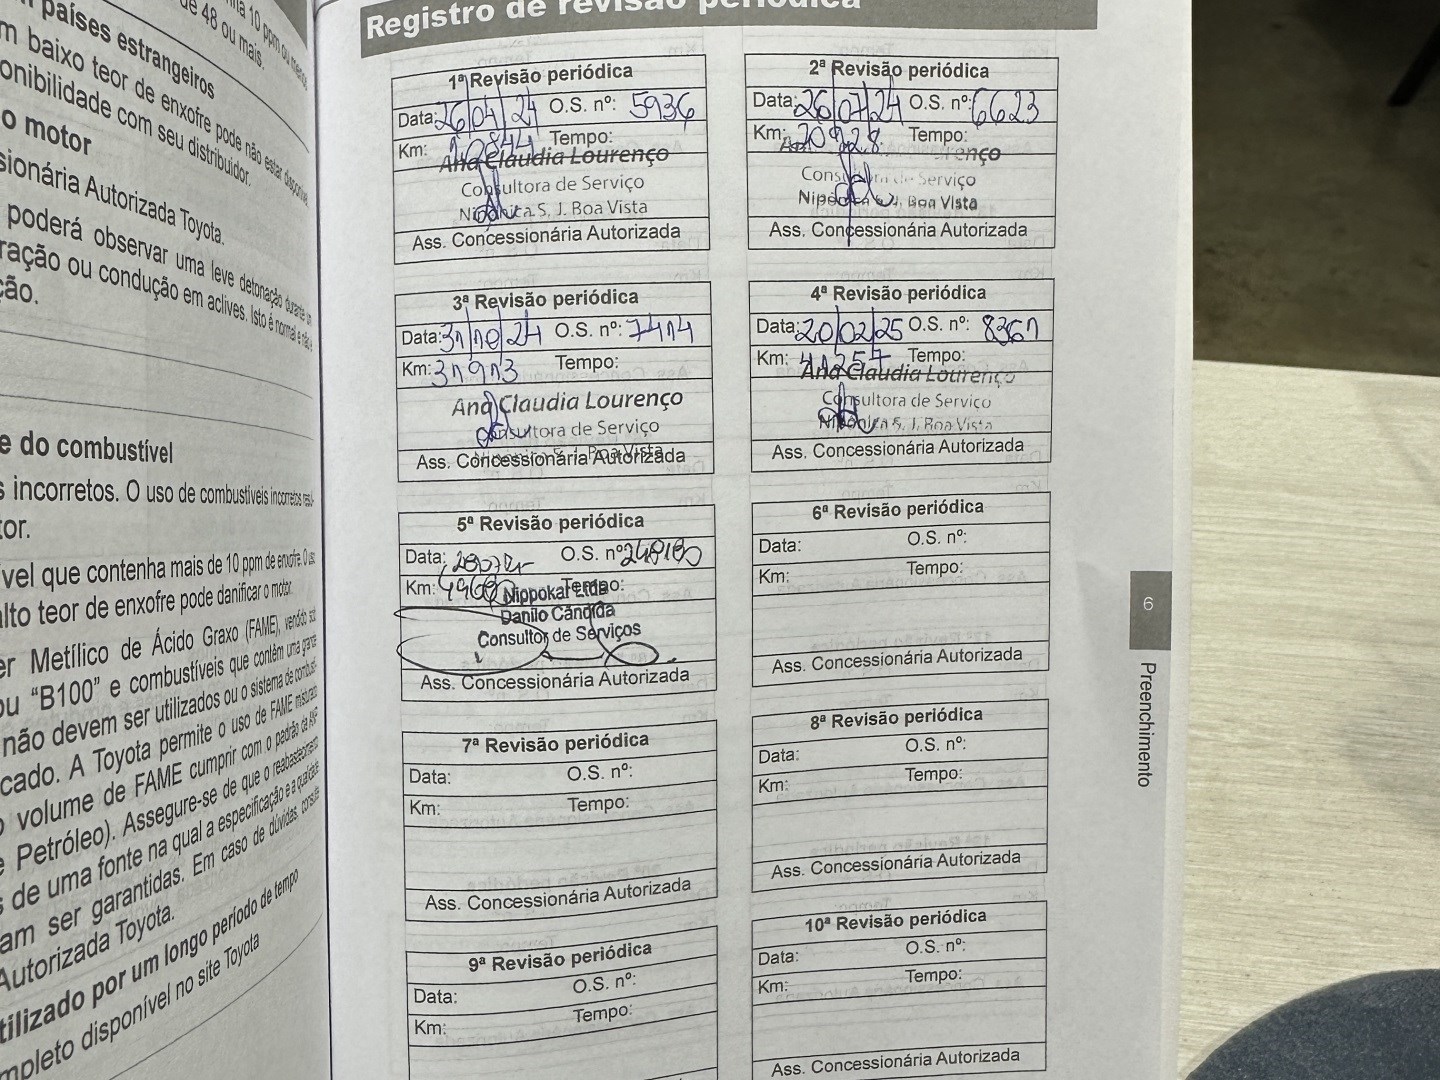 países estrangeiros
10 ppm ou menos
de 48 ou mais.
m baixo teor de enxofre pode não estar disponível
onibilidade com seu distribuidor.
o motor
sionária Autorizada Toyota.
poderá observar uma leve detonação durante
ração ou condução em aclives. Isto é normal e não
ção.
e do combustível
s incorretos. O uso de combustíveis incorretos
tor.
vel que contenha mais de 10 ppm de enxofre. O uso
alto teor de enxofre pode danificar o motor.
er Metílico de Ácido Graxo (FAME), vendido sob
ou “B100” e combustíveis que contêm uma grande
não devem ser utilizados ou o sistema de combust
cado. A Toyota permite o uso de FAME misturado
o volume de FAME cumprir com o padrão da ANP
e Petróleo). Assegure-se de que o reabastecimento
s de uma fonte na qual a especificação e a qualidade
am ser garantidas. Em caso de dúvidas, consulte
Autorizada Toyota.
tilizado por um longo período de tempo
mpleto disponível no site Toyota
Registro de revisão periódica
1ª Revisão periódica
Data: 26/04/24 O.S. nº: 5936
Km: 10844 Tempo:
Ana Claudia Lourenço
Consultora de Serviço
Nipônica S. J. Boa Vista
Ass. Concessionária Autorizada
2ª Revisão periódica
Data: 26/07/24 O.S. nº: 6623
Km: 20928 Tempo:
renço
Consultora de Serviço
Nipônica S. J. Boa Vista
Ass. Concessionária Autorizada
3ª Revisão periódica
Data: 31/10/24 O.S. nº: 7414
Km: 31913 Tempo:
Ana Claudia Lourenço
Consultora de Serviço
Nipônica S. J. Boa Vista
Ass. Concessionária Autorizada
4ª Revisão periódica
Data: 20/02/25 O.S. nº: 8361
Km: 41257 Tempo:
Ana Claudia Lourenço
Consultora de Serviço
Nipônica S. J. Boa Vista
Ass. Concessionária Autorizada
5ª Revisão periódica
Data: O.S. nº 248180
Km: Tempo:
Nippokar Ltda
Danilo Cândida
Consultor de Serviços
Ass. Concessionária Autorizada
6ª Revisão periódica
Data: O.S. nº:
Km: Tempo:
Ass. Concessionária Autorizada
7ª Revisão periódica
Data: O.S. nº:
Km: Tempo:
Ass. Concessionária Autorizada
8ª Revisão periódica
Data: O.S. nº:
Km: Tempo:
Ass. Concessionária Autorizada
9ª Revisão periódica
Data: O.S. nº:
Km: Tempo:
10ª Revisão periódica
Data: O.S. nº:
Km: Tempo:
Ass. Concessionária Autorizada
6
Preenchimento